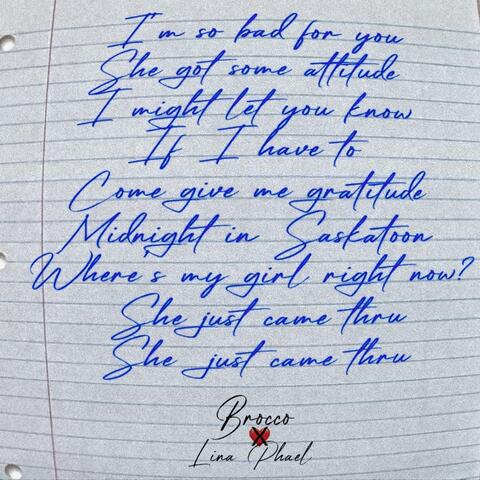 I'm so bad for you
She got some attitude
I might let you know
If I have to
Come give me gratitude
Midnight in Saskatoon
Where's my girl right now?
She just came thru
She just came thru
Brocco
X
Lina Phael